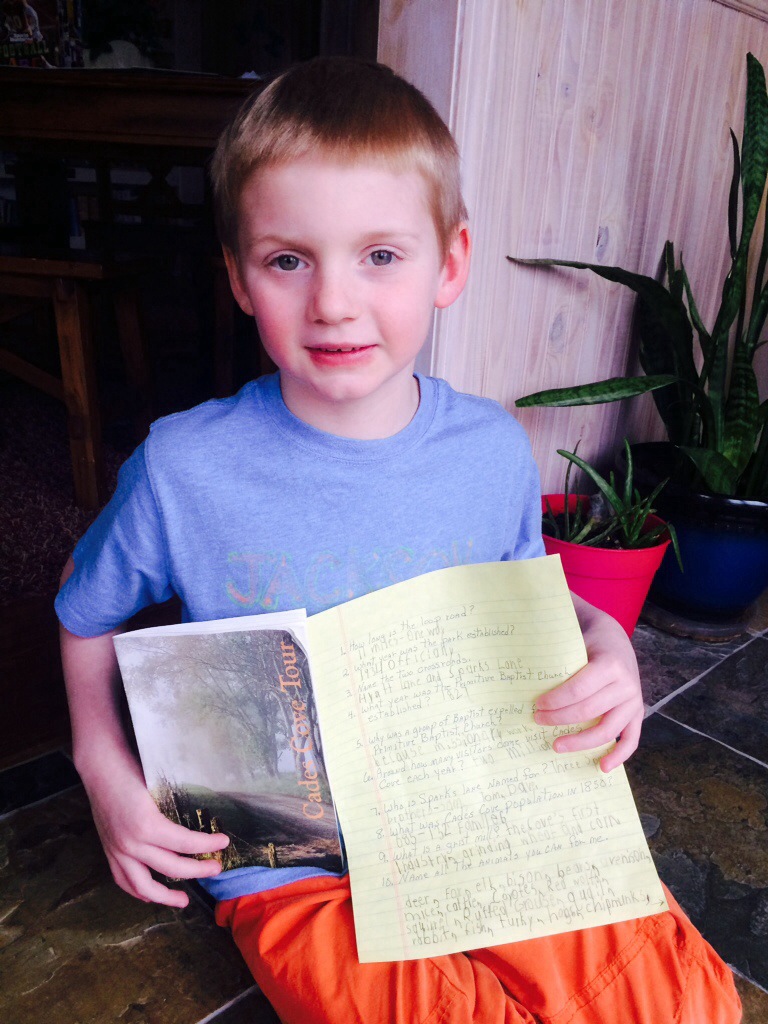 FOOTBALL
JACKSON
Cades Cove Tour
1. How long is the loop road?
11 miles-one way
2. What year was the park established?
1934 officially
3. Name the two crossroads.
Hyatt Lane and Sparks Lane
4. What year was the Primitive Baptist Church
established? 1827
5. Why was a group of Baptist expelled
Primitive Baptist Church?
because missionary
6. Around how many visitors come visit Cades
Cove each year? two million
7. Who is Sparks lane named for?
Tom, Dave
8. What was Cades Cove population in 1850?
685-132 Families
9. What is a grist mill? the Cove's First
industry grinding wheat and corn
10. Name all the animals you can for me.
deer, fox, elk, bison, bears,
mice, cattle, coyote, Red wolf,
squirrel, Ruffed Grouse, quail,
rabbit, fish, turky, hogs, chipmunks,